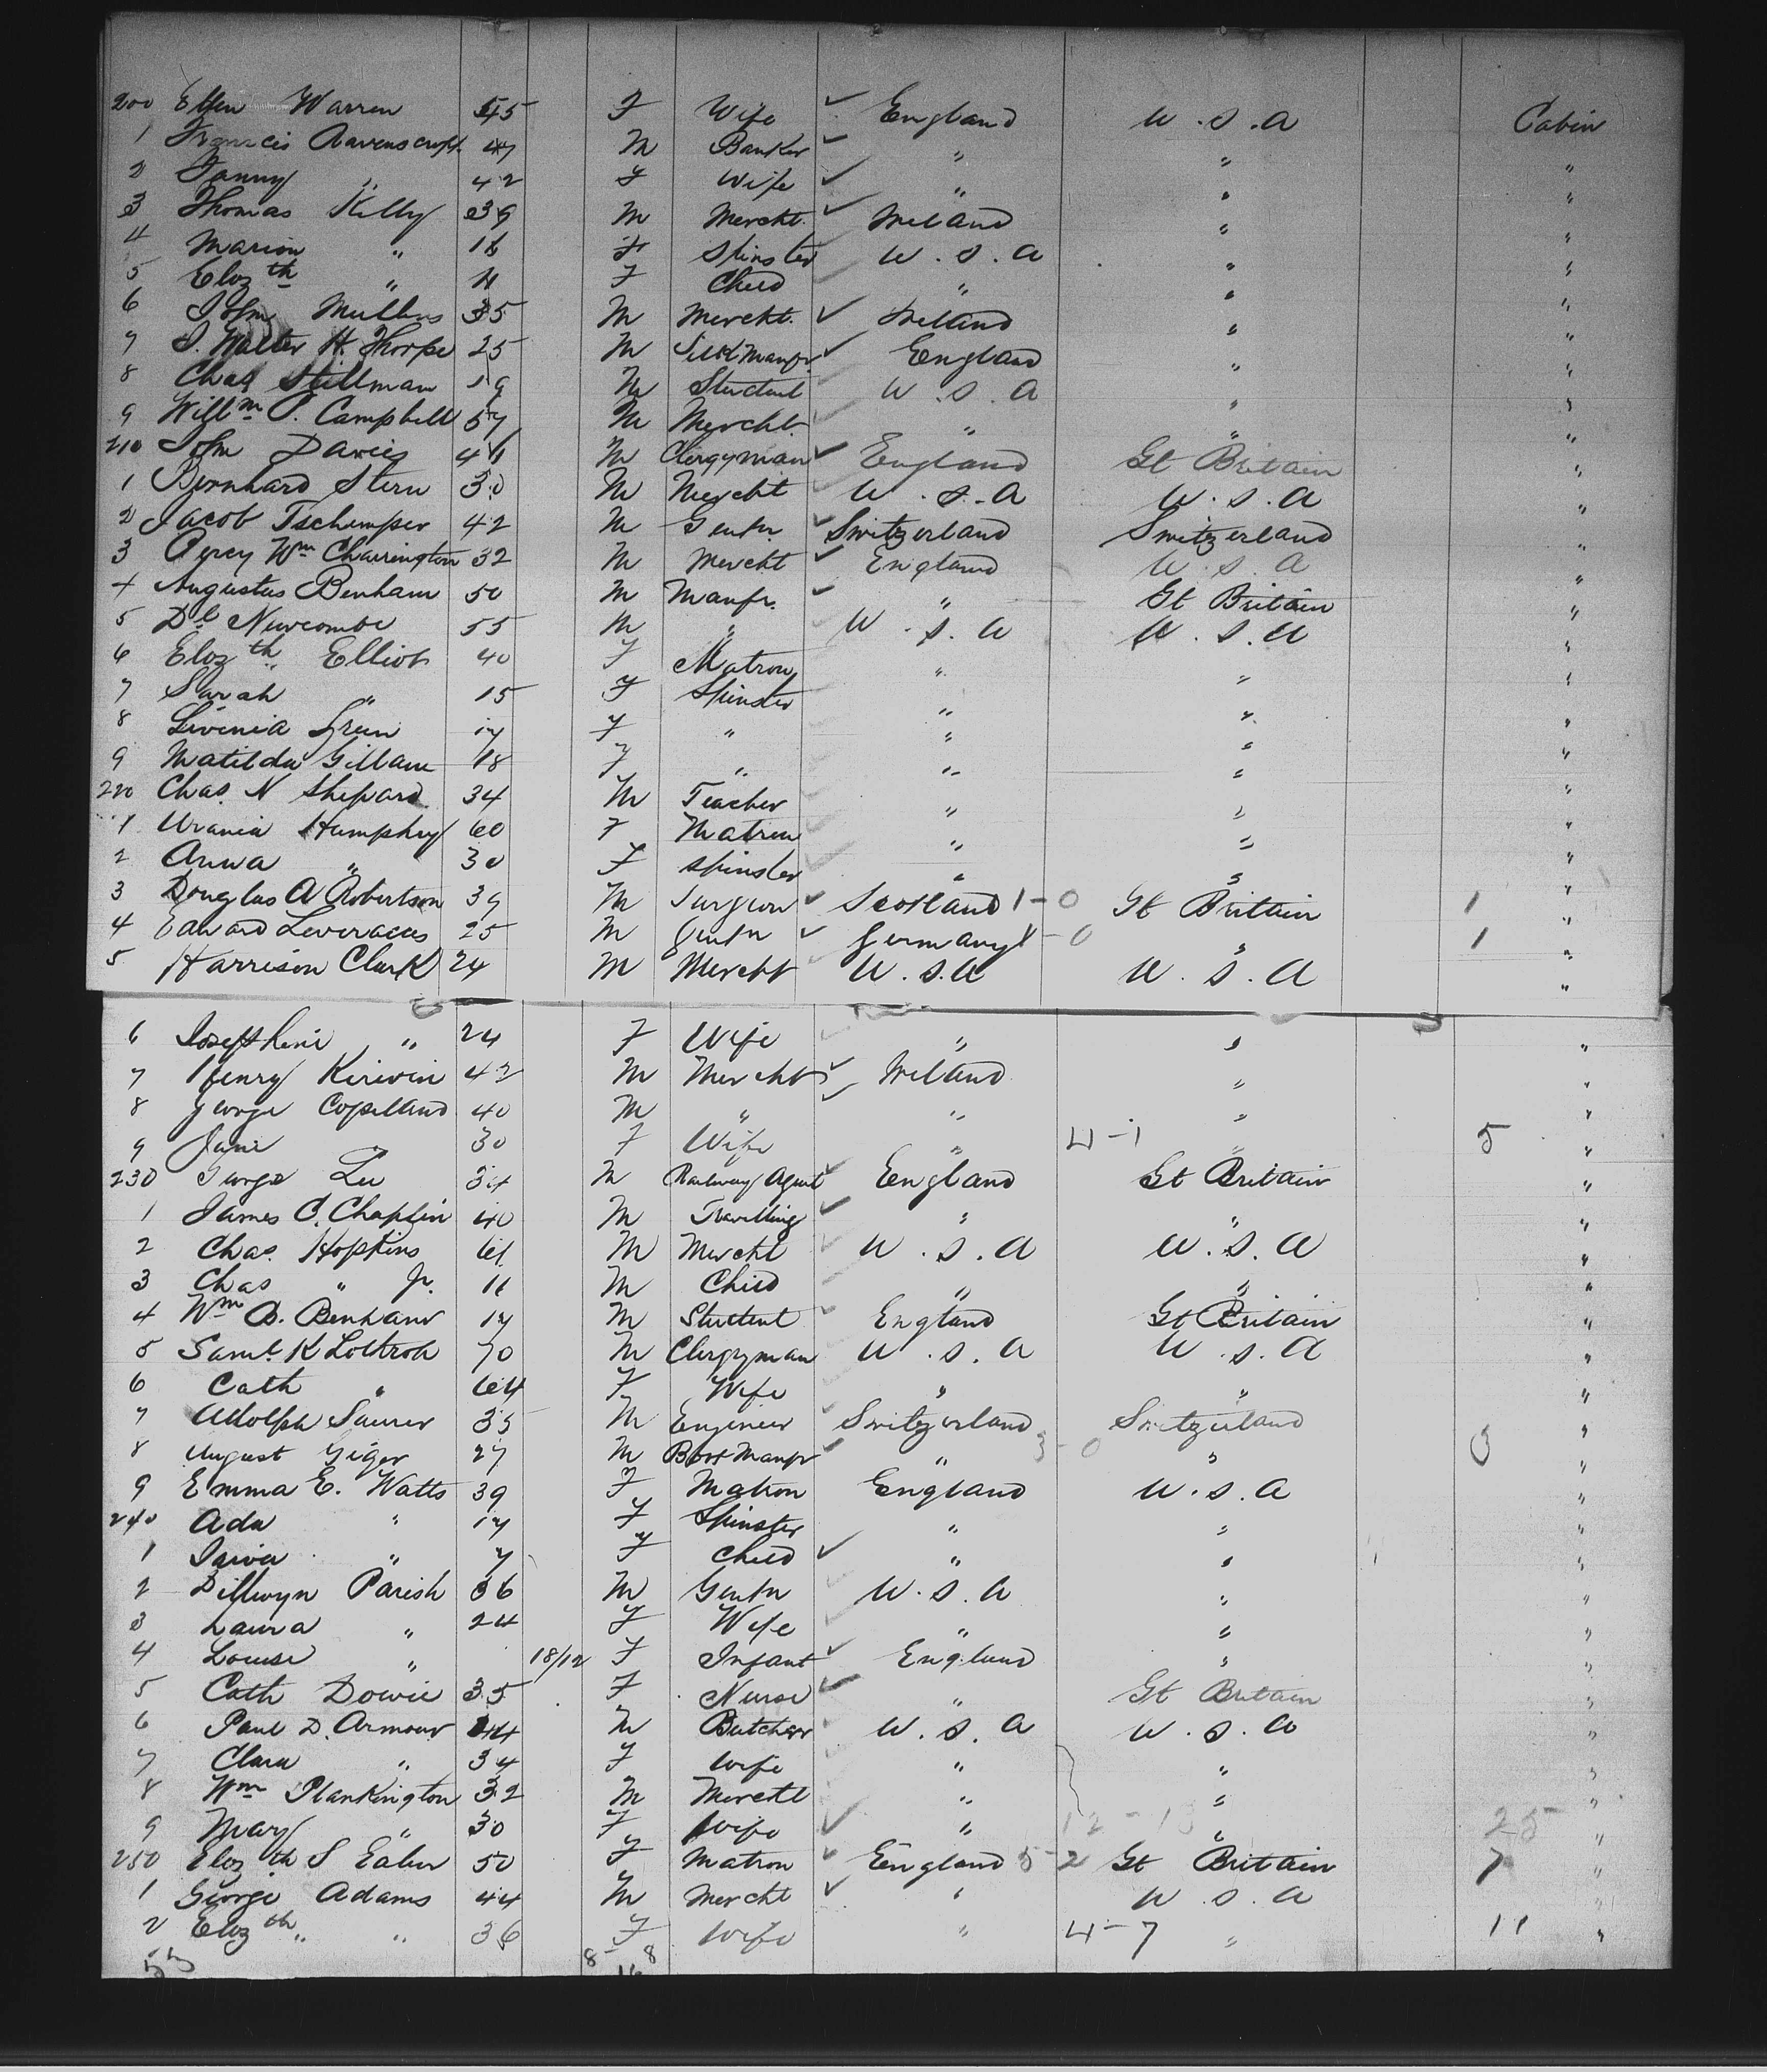 200 Ellen Warren 45 F Wife ✓ England U.S.A Cabin
1 Francis Ravenscroft 47 M Banker ✓ " " "
2 Fanny " 42 F Wife ✓ " " "
3 Thomas Kelly 39 M Mercht. ✓ Ireland " "
4 Marion " 18 F Spinster U.S.A " "
5 Elizth " 11 F Child " " "
6 John Mullins 35 M Mercht. ✓ Ireland " "
7 S. Walter H. Thorpe 25 M Silk Manfr ✓ England " "
8 Chas Stillman 19 M Student U.S.A " "
9 Willm P. Campbell 57 M Mercht. " " "
210 John Davies M Clergyman ✓ England Gt Britain "
1 Bernhard Stern 30 M Mercht U.S.A U.S.A "
2 Jacob Tschumper 42 M Gentn ✓ Switzerland Switzerland "
3 Percy Wm Charrington 32 M Mercht ✓ England U.S.A "
4 Augustus Benham 50 M Manfr. ✓ " Gt Britain "
5 Dl Newcombe 55 M " U.S.A U.S.A "
6 Elizth Elliot 40 F Matron " " "
7 Sarah " 15 F Spinster " " "
8 Livenia Green 17 F " " " "
9 Matilda Gillam 18 F " " " "
220 Chas. N Shepard 34 M Teacher " " "
1 Urania Humphry 60 F Matron " " "
2 Anna " 30 F Spinster " " "
3 Douglas A Robertson 39 M Surgeon ✓ Scotland 1-0 Gt Britain 1 "
4 Edward 25 M Gentn ✓ Germany 1-0 " 1 "
5 Harrison Clark 24 M Mercht U.S.A U.S.A "
6 Josephine " 24 F Wife " " "
7 Henry Kirwin 42 M Mercht ✓ Ireland " "
8 George Copelland 40 M " " " "
9 Jane 30 F Wife " 4-1 " 5 "
230 George Lee 34 M Railway Agent ✓ England Gt Britain "
1 James C. Chaplin 40 M Travelling ✓ " " "
2 Chas. Hopkins 61 M Mercht U.S.A U.S.A "
3 Chas " Jr. 11 M Child " " "
4 Wm B. Benham 17 M Student England Gt Britain "
5 Saml K Lothrop 70 M Clergyman U.S.A U.S.A "
6 Cath " 64 F Wife " " "
7 Adolph Saurer 35 M Engineer Switzerland Switzerland "
8 August Giger 27 M Boot Manfr ✓ " 3-0 " 3 "
9 Emma E. Watts 39 F Matron England U.S.A "
240 Ada " 17 F Spinster " " "
1 " 7 F Child ✓ " " "
2 Dillwyn Parish 36 M Gentn U.S.A " "
3 Laura " 24 F Wife " " "
4 Louise " 18/12 F Infant ✓ England " "
5 Cath Dowie 35 F Nurse ✓ " Gt Britain "
6 Paul D. Armour 44 M Butcher U.S.A U.S.A "
7 Clara " 34 F Wife " " "
8 Wm Plankington 32 M Mercht " " "
9 Mary " 30 F Wife ✓ " 12-13 " 25 "
250 Elizth S 50 F Matron ✓ England 5-2 Gt Britain 7 "
1 George Adams 44 M Mercht ✓ " U.S.A "
2 Elizth " " 36 F Wife " 4-7 " 11 "
53 8 8